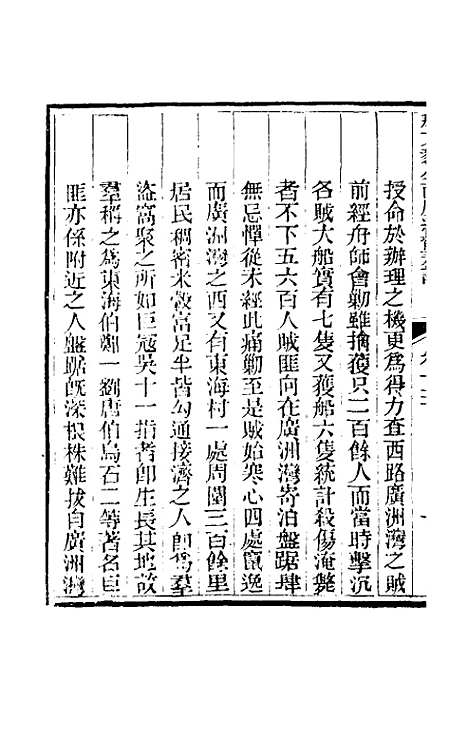 授命於辦理之機更爲得力查西路廣洲灣之賊
前經舟師會勦雖擒獲只二百餘人而當時擊沉
各賊大船實有七隻又獲船六隻統計殺傷淹斃
者不下五六百人賊匪向在廣洲灣寄泊盤踞肆
無忌憚從未經此痛勦至是賊始寒心四處竄逸
而廣洲灣之西又有東海村一處周圍三百餘里
居民稠密米穀富足半皆勾通接濟之人卽爲羣
盜窩聚之所如巨寇吳十一指者卽生長其地故
羣稱之爲東海伯鄭一劉唐伯烏石二等著名巨
匪亦係附近之人盤踞旣深根株難拔自廣洲灣